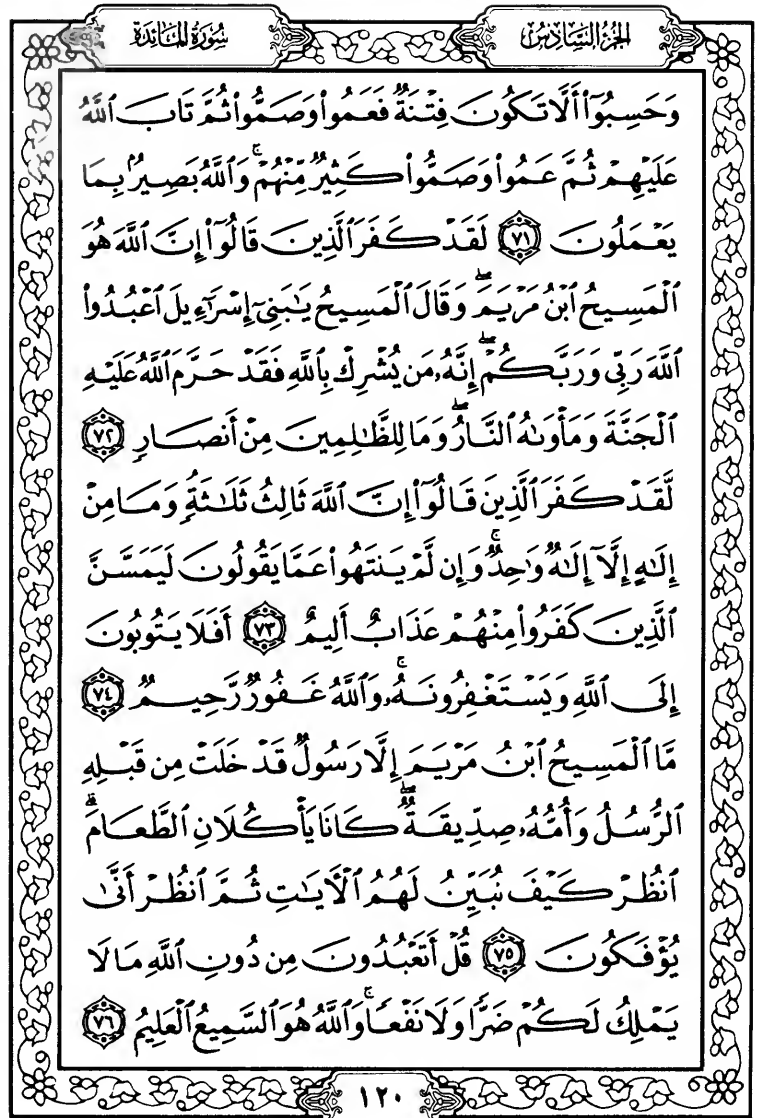 الجزء السادس
سورة المائدة
وَحَسِبُوٓا۟ أَلَّا تَكُونَ فِتْنَةٌ فَعَمُوا۟ وَصَمُّوا۟ ثُمَّ تَابَ ٱللَّهُ
عَلَيْهِمْ ثُمَّ عَمُوا۟ وَصَمُّوا۟ كَثِيرٌ مِّنْهُمْ ۚ وَٱللَّهُ بَصِيرٌۢ بِمَا
يَعْمَلُونَ ٧١ لَقَدْ كَفَرَ ٱلَّذِينَ قَالُوٓا۟ إِنَّ ٱللَّهَ هُوَ
ٱلْمَسِيحُ ٱبْنُ مَرْيَمَ ۖ وَقَالَ ٱلْمَسِيحُ يَٰبَنِىٓ إِسْرَٰٓءِيلَ ٱعْبُدُوا۟
ٱللَّهَ رَبِّى وَرَبَّكُمْ ۖ إِنَّهُۥ مَن يُشْرِكْ بِٱللَّهِ فَقَدْ حَرَّمَ ٱللَّهُ عَلَيْهِ
ٱلْجَنَّةَ وَمَأْوَىٰهُ ٱلنَّارُ ۖ وَمَا لِلظَّٰلِمِينَ مِنْ أَنصَارٍ ٧٢
لَّقَدْ كَفَرَ ٱلَّذِينَ قَالُوٓا۟ إِنَّ ٱللَّهَ ثَالِثُ ثَلَٰثَةٍ ۘ وَمَا مِنْ
إِلَٰهٍ إِلَّآ إِلَٰهٌ وَٰحِدٌ ۚ وَإِن لَّمْ يَنتَهُوا۟ عَمَّا يَقُولُونَ لَيَمَسَّنَّ
ٱلَّذِينَ كَفَرُوا۟ مِنْهُمْ عَذَابٌ أَلِيمٌ ٧٣ أَفَلَا يَتُوبُونَ
إِلَى ٱللَّهِ وَيَسْتَغْفِرُونَهُۥ ۚ وَٱللَّهُ غَفُورٌ رَّحِيمٌ ٧٤
مَّا ٱلْمَسِيحُ ٱبْنُ مَرْيَمَ إِلَّا رَسُولٌ قَدْ خَلَتْ مِن قَبْلِهِ
ٱلرُّسُلُ وَأُمُّهُۥ صِدِّيقَةٌ ۖ كَانَا يَأْكُلَانِ ٱلطَّعَامَ ۗ
ٱنظُرْ كَيْفَ نُبَيِّنُ لَهُمُ ٱلْـَٔايَٰتِ ثُمَّ ٱنظُرْ أَنَّىٰ
يُؤْفَكُونَ ٧٥ قُلْ أَتَعْبُدُونَ مِن دُونِ ٱللَّهِ مَا لَا
يَمْلِكُ لَكُمْ ضَرًّا وَلَا نَفْعًا ۚ وَٱللَّهُ هُوَ ٱلسَّمِيعُ ٱلْعَلِيمُ ٧٦
١٢٠